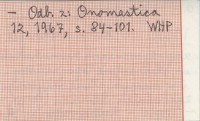 – Odb. z: Onomastica
12, 1967, s. 84-101. WHP